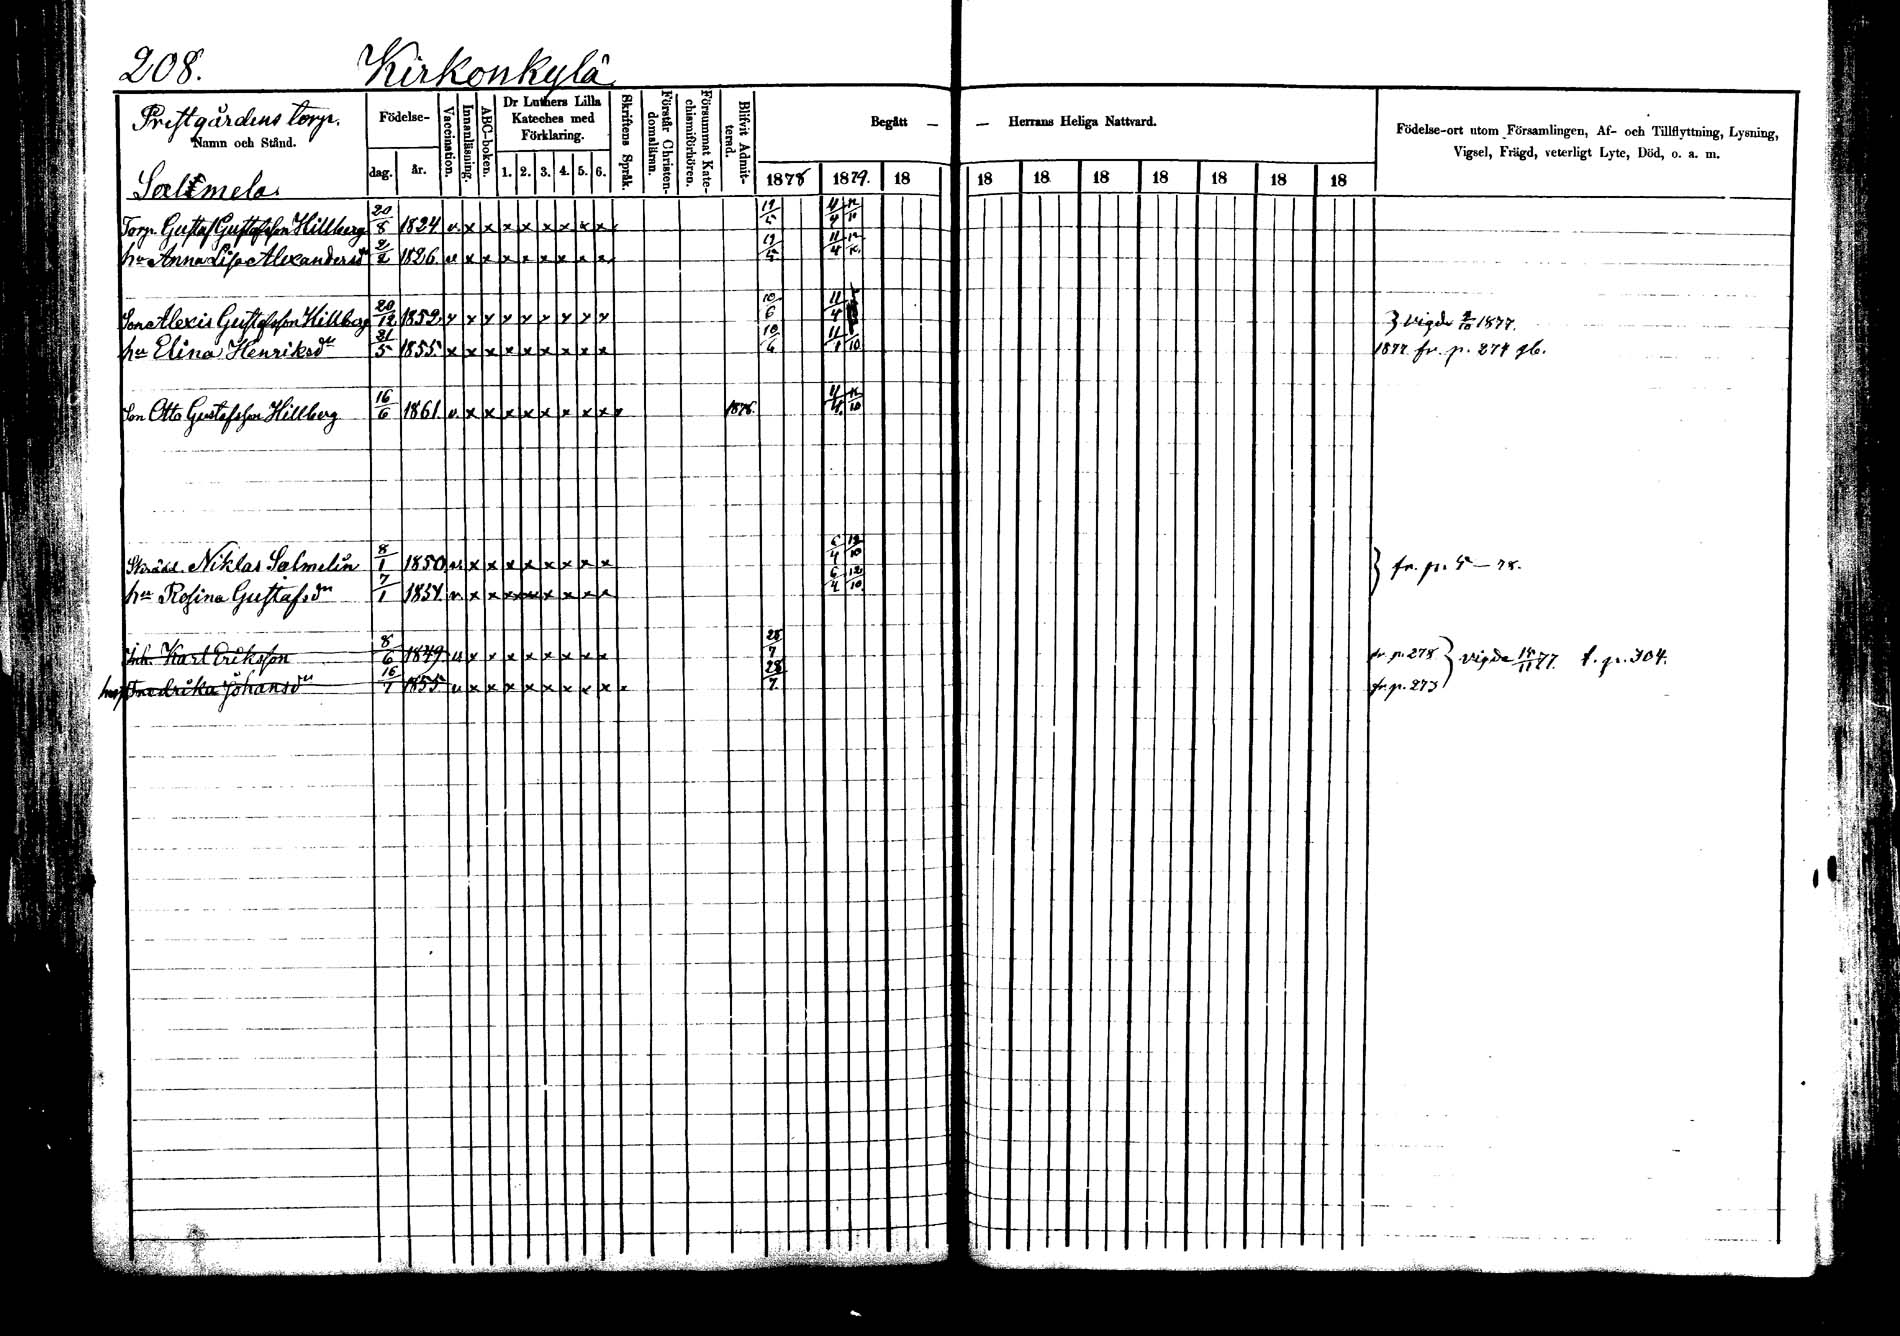 208. Kirkonkylä
Prestgårdens torp.
Namn och Stånd.
Salmela
Födelse-
dag. år.
Vaccination.
Innanläsning.
ABC-boken.
Dr Luthers Lilla
Kateches med
Förklaring.
1. 2. 3. 4. 5. 6.
Skriftens Språk.
Förstår Christen-
domsläran.
Försummat Kate-
chismiförhören.
Blifvit Admit-
terad.
Begått —
1878 1879. 18
— Herrans Heliga Nattvard.
18 18 18 18 18 18 18
Födelse-ort utom Församlingen, Af- och Tillflyttning, Lysning,
Vigsel, Frägd, veterligt Lyte, Död, o. a. m.
Torp. Gustaf Gustafsson Hillberg 20/8 1824 v x x x x x x x x 19/5 11/4 12/10
hu Anna Lisa Alexandersdr 2/2 1826. v x x x x x x x x 19/5 11/4 12/10
Son Alexis Gustafsson Hillberg 20/12 1852. v x x x x x x x x 10/6 11/4 } vigde 2/10 1877.
hu Elina Henriksdr 21/5 1855 x x x x x x x x x 10/6 11/4 12/10 1877 fr. p. 274 gb.
Son Otto Gustafsson Hillberg 16/6 1861. v x x x x x x x x x 1878. 11/4 12/10
Skrädd. Niklas Salmelin 8/1 1850 v x x x x x x x x 6/4 12/10 } fr. p. 5 — 78.
hu Rosina Gustafsdr 7/1 1851. v x x x x x x x x 6/4 12/10
Inh. Karl Eriksson 8/6 1849 v x x x x x x x x 28/7 fr. p. 278 } vigde 18/11 77. t. p. 304.
hu Fredrika Johansdr 16/7 1855 v x x x x x x x x x 28/7 fr. p. 273